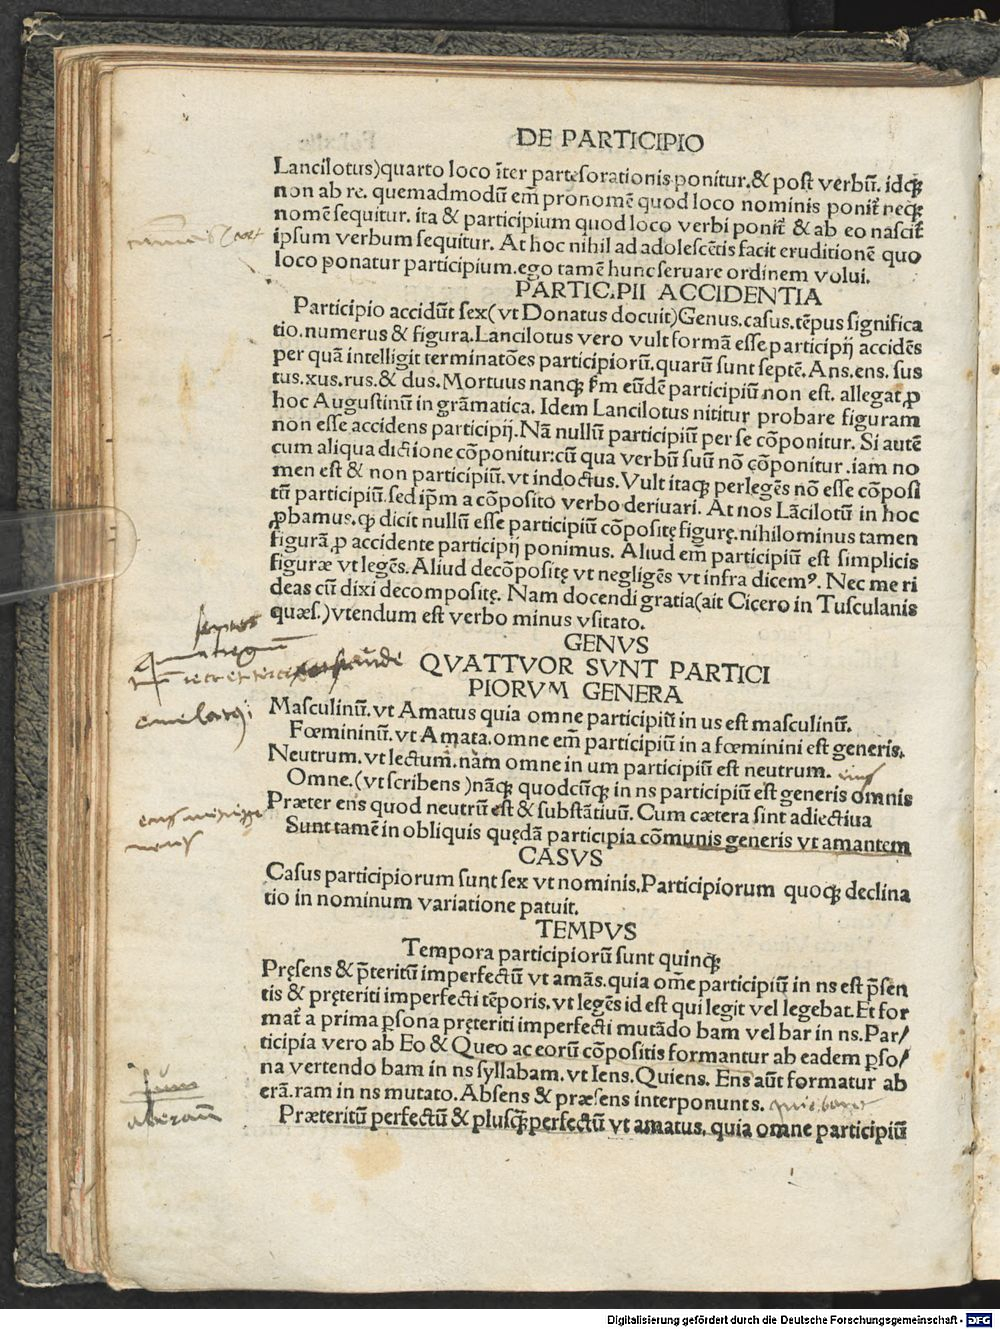 DE PARTICIPIO
Lancilotus)quarto loco īter partesorationis ponitur.& post verbū. idq̨
non ab re. quemadmodū em̄ pronomē quod loco nominis poniť neq̨
nomē sequitur. ita & participium quod loco verbi poniť & ab eo nasciť
ipsum verbum sequitur. At hoc nihil ad adolescētis facit eruditionē quo
loco ponatur participium.ego tamē hunc seruare ordinem volui.
PARTICIPII ACCIDENTIA
Participio accidūt sex(vt Donatus docuit)Genus.casus.tēpus significa
tio.numerus & figura.Lancilotus vero vult formā esse participij accidēs
per quā intelligit terminatōes participiorū.quarū sunt septē. Ans.ens. sus
tus.xus.rus.& dus.Mortuus nanq̨ ẜm eūdē participiū non est. allegat ꝓ
hoc Augustinū in grāmatica. Idem Lancilotus nititur probare figuram
non esse accidens participij.Nā nullū participiū per se cōponitur. Si autē
cum aliqua dictione cōponitur:cū qua verbū suū nō cōponitur .iam no
men est & non participiū. vt indoctus. Vult itaq̨ perlegēs nō esse cōposi
tū participiū.sed ip̄m a cōposito verbo deriuari. At nos Lācilotū in hoc
ꝓbamus. q̨ dicit nullū esse participiū cōpositę figurę.nihilominus tamen
figurā ꝓ accidente participij ponimus. Aliud em̄ participiū est simplicis
figuræ vt legēs. Aliud decōpositę vt negligēs vt infra dicemꝰ. Nec me ri
deas cū dixi decompositę. Nam docendi gratia(ait Cicero in Tusculanis
quæs.)vtendum est verbo minus vsitato.
GENVS
QVATTVOR SVNT PARTICI
PIORVM GENERA
Masculinū. vt Amatus quia omne participiū in us est masculinū.
Fœmininū. vt Amata.omne em̄ participiū in a fœminini est generis.
Neutrum. vt lectum. nam omne in um participiū est neutrum.
Omne.(vt scribens )nāq̨ quodcūq̨ in ns participiū est generis omnis
Præter ens quod neutrū est & substātiuū. Cum cætera sint adiectiua
Sunt tamē in obliquis quędā participia cōmunis generis vt amantem
CASVS
Casus participiorum sunt sex vt nominis.Participiorum quoq̨ declina
tio in nominum variatione patuit.
TEMPVS
Tempora participiorū sunt quinq̨
Pręsens & p̄teritū imperfectū vt amās. quia om̄e participiū in ns est p̄sen
tis & pręteriti imperfecti tēporis. vt legēs id est qui legit vel legebat. Et for
mať a prima ꝑsona pręteriti imperfecti mutādo bam vel bar in ns. Par/
ticipia vero ab Eo & Queo ac eorū cōpositis formantur ab eadem ꝑso/
na vertendo bam in ns syllabam. vt Iens. Quiens. Ens aūt formatur ab
erā.ram in ns mutato. Absens & præsens interponunts.
Præteritū perfectū & plusq̨perfectū vt amatus. quia omne participiū
Digitalisierung gefördert durch die Deutsche Forschungsgemeinschaft - DFG